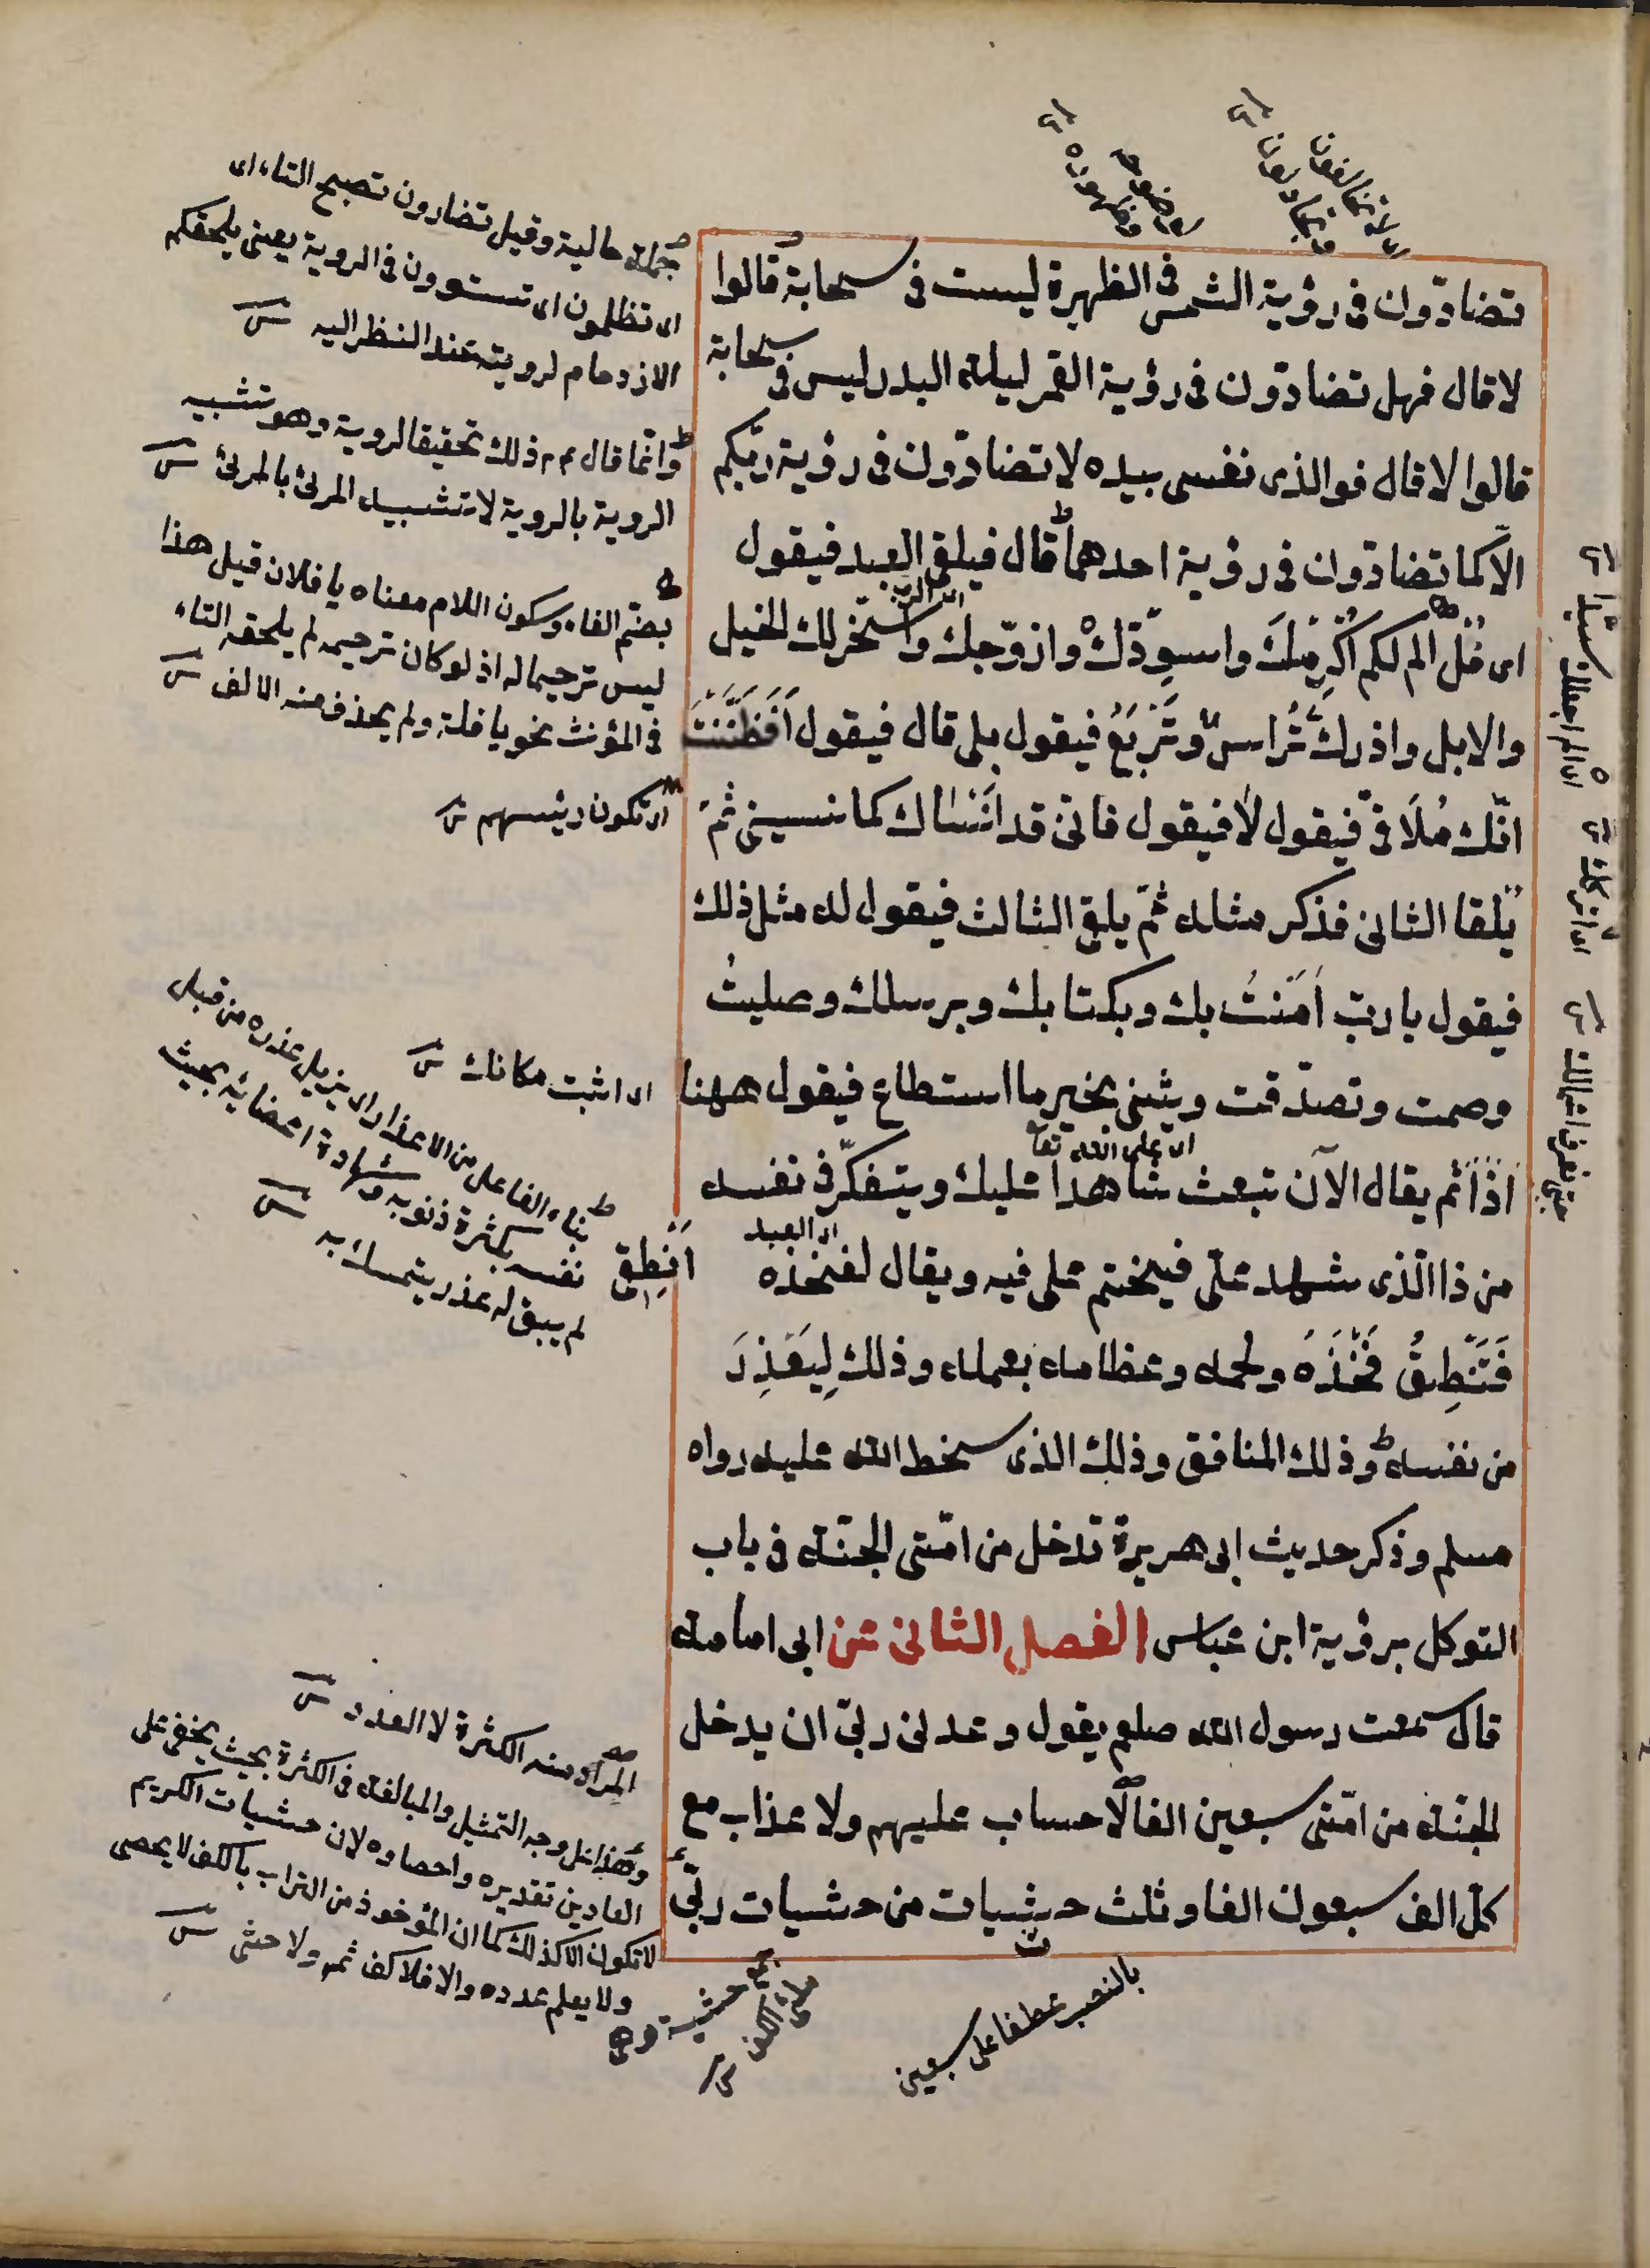 تضارّون فى رؤية الشمس فى الظهيرة ليست فى سحابة قالوا
لا قال فهل تضارّون فى رؤية القمر ليلة البدر ليس فى سحابة
قالوا لا قال فوالذى نفسى بيده لا تضارّون فى رؤية ربّكم
الّا كما تضارّون فى رؤية احدهما قال فيلقى العبد فيقول
اى فُلْ الم اكرمك واسوّدك وازوّجك واسخّر لك الخيل
اى الرب
والابل واذرك تراس وتربع فيقول بلى قال فيقول افظننت
انّك ملاقىّ فيقول لا فيقول فانى قد انساك كما نسيتنى ثمّ
يلقا الثانى فذكر مثله ثمّ يلقى الثالث فيقول له مثل ذلك
فيقول يا ربّ امنت بك وبكتابك وبرسلك وصليت
وصمت وتصدّقت ويثنى بخير ما استطاع فيقول ههنا
اذًا ثم يقال الآن نبعث شاهدا عليك ويتفكّر فى نفسه
اى على الله تعا
من ذا الّذى شهد علىّ فيختم على فيه ويقال لفخذه انطِقى
اى العبد
فَتَنْطِقُ فَخْذَهُ ولحمه وعظامه بعمله وذلك ليعذر
من نفسه وذلك المنافق وذلك الذى سخط الله عليه رواه
مسلم وذكر حديث ابى هريرة تدخل من امّتى الجنّة فى باب
التوكل برؤية ابن عباس الفصل الثانى عن ابى امامة
قال سمعت رسول الله صلعم يقول وعدنى ربّى ان يدخل
الجنّة من امّتى سبعين الفا لا حساب عليهم ولا عذاب مع
كلّ الف سبعون الفا وثلث حثيات من حثيات ربّى
جملة حالية وقيل تضارون تصبح التاء اى
اى تظلمون اى تستوون فى الروية يعنى يلحقكم
الازدحام لرويته عند النظر اليه
وانما قال عم ذلك تحقيقا لروية وهو تشبيه
الروية بالروية لا تشبيه المرئ بالمرئ
بضم الفاء وسكون اللام معناه يا فلان قيل هذا
ليس ترخيما له اذ لو كان ترخيمه لم يلحقه التاء
فى المؤنث نحو يا فلة ولم يحذف منه الالف
اى تكون رئيسهم
اى اثبت مكانك
بناء الفاعل من الاعذار اى يزيل عذره من قبل
نفسه بكثرة ذنوبه وشهادة اعضائه بحيث
لم يبق له عذر يتمسك به
المراد منه الكثرة لا العدد
وجه التمثيل والمبالغة فى الكثرة بحيث يخفى على
العادين تقديره واحصاؤه لان حثيات الكريم
لا تكون الا كذلك كما ان المؤخوذ من التراب بالكف لا يحصى
ولا يعلم عدده والا فلا كف ثمه ولا حثى
حثية وهى
ملئ الكف
بالنصب عطفا على سبعين
اى الم اجعلك سيدا
اى اتركك